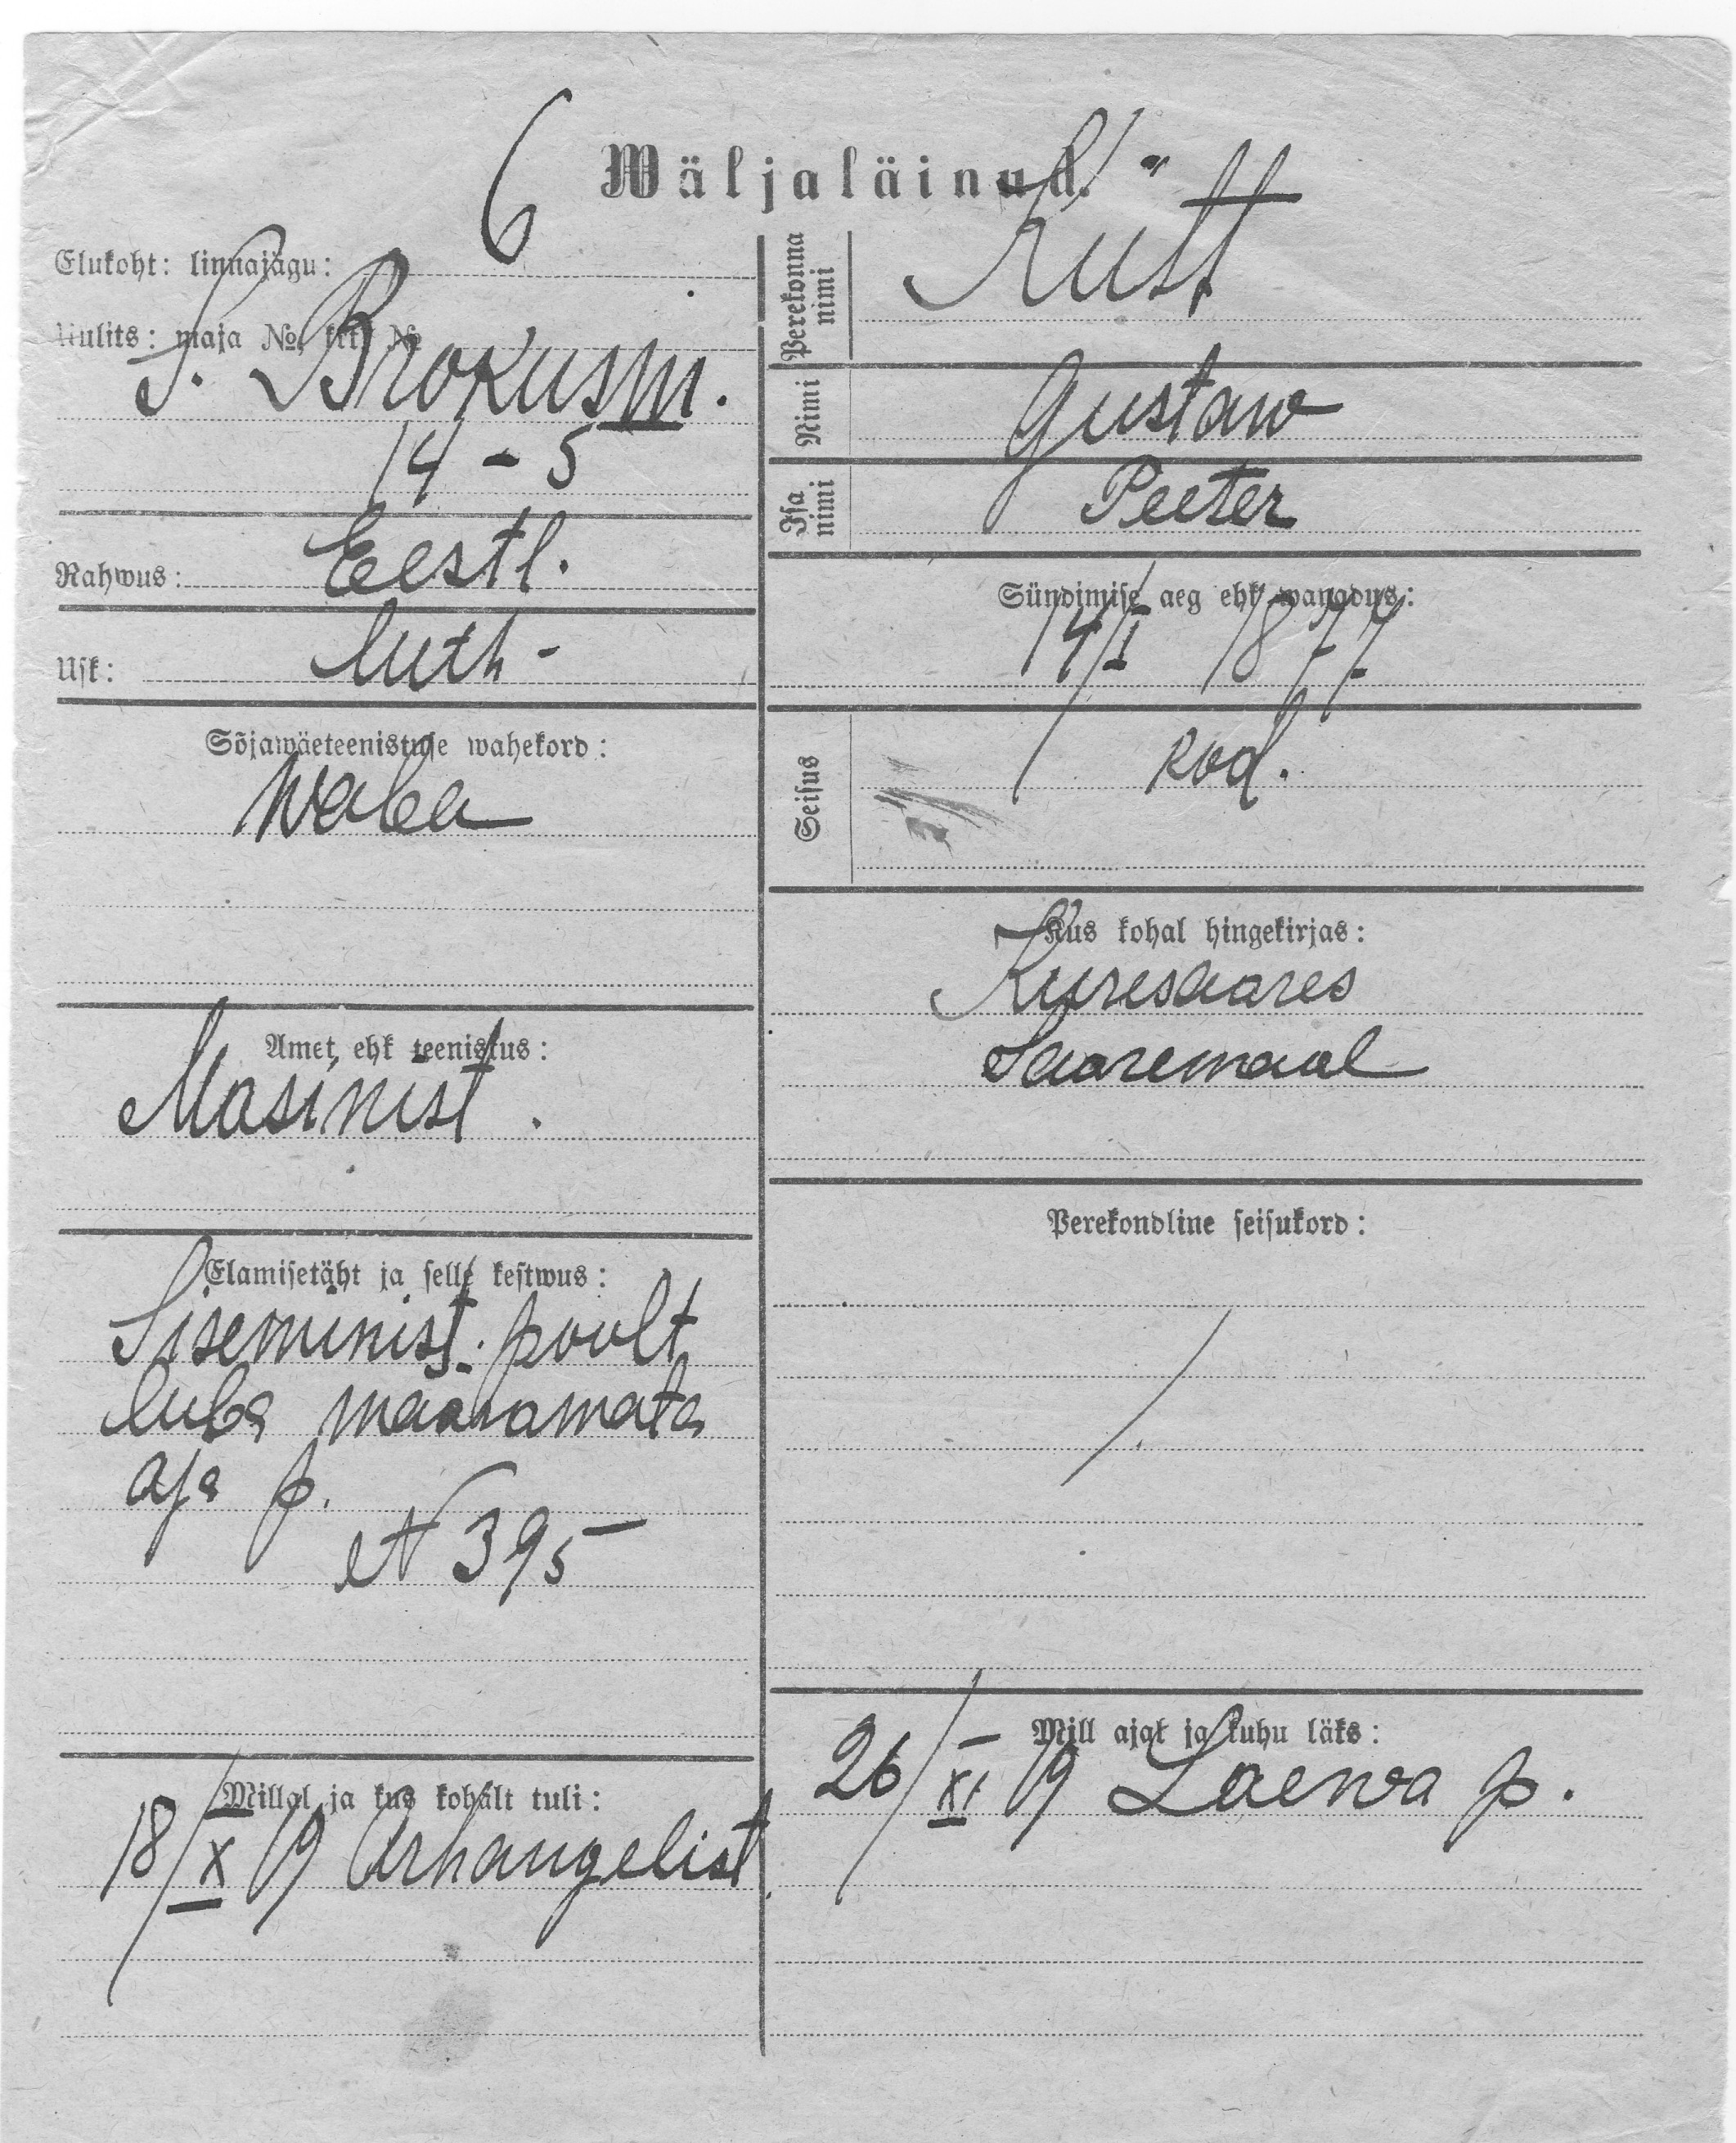 6
Wäljaläinud.
Elukoht: linnajagu:
Uulits: maja № krt. №
S. Brokusm.
14 - 5
Rahwus: Eestl.
Usk: luth-
Sõjawäeteenistuse wahekord:
Waba
Amet ehk teenistus:
Masinist.
Elamisetäht ja selle kestwus:
Siseminist. poolt
luba maaramata
aja p.
N 395
Millal ja kus kohalt tuli:
18/X 19 Arhangelist
Perekonna nimi Kütt
Nimi Gustaw
Isa nimi Peeter
Sündimise aeg ehk wanadus:
14/I 1877
Seisus kod.
Kus kohal hingekirjas:
Kuresaares
Saaremaal
Perekondline seisukord:
Mill ajal ja kuhu läks:
26/XI 19 Laewa p.